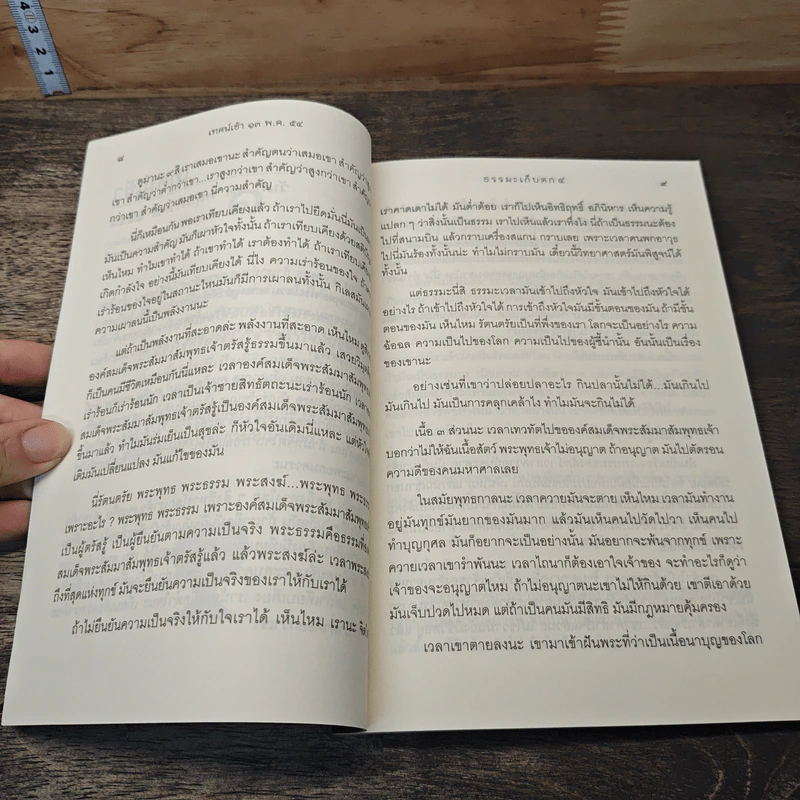 4
3
2
1
๘
เทศน์เช้า ๑๓ พ.ค. ๕๔
ดูมานะ ๙ สิ เราเสมอเขานะ สำคัญตนว่าเสมอเขา สำคัญว่าสูงกว่า
เขา สำคัญว่าต่ำกว่าเขา...เราสูงกว่าเขา สำคัญว่าสูงกว่าเขา สำคัญว่าต่ำ
กว่าเขา สำคัญว่าเสมอเขา นี่ความสำคัญ
นี่ก็เหมือนกัน พอเราเทียบเคียงแล้ว ถ้าเราไปยึดมั่นนี่มันเป็น
มันเป็นความสำคัญ มันก็เผาหัวใจทั้งนั้น ถ้าเราเทียบเคียงด้วยสติ
เห็นไหม ทำไมเขาทำได้ ถ้าเขาทำได้ เราต้องทำได้ ถ้าเราเทียบเคียง
เกิดกำลังใจ อย่างนี้มันเทียบเคียงได้ นี่ไง ความเร่าร้อนของใจ ถ้า
เร่าร้อนของใจอยู่ในสถานะไหนมันก็มีการเผาลนทั้งนั้น กิเลสมัน
ความเผาลนนี้เป็นพลังงานนะ
แต่ถ้าเป็นพลังงานที่สะอาดล่ะ พลังงานที่สะอาด เห็นไหม ดูสิ
องค์สมเด็จพระสัมมาสัมพุทธเจ้าตรัสรู้ธรรมขึ้นมาแล้ว เสวยวิมุตติ
ก็เป็นคนมีชีวิตเหมือนกันนี่แหละ เวลาองค์สมเด็จพระสัมมาสัมพุทธ
เร่าร้อนก็เร่าร้อนนัก เวลาเป็นเจ้าชายสิทธัตถะนะเร่าร้อนนัก เวลา
สมเด็จพระสัมมาสัมพุทธเจ้าตรัสรู้เป็นองค์สมเด็จพระสัมมาสัมพุทธ
ขึ้นมาแล้ว ทำไมมันร่มเย็นเป็นสุขล่ะ ก็หัวใจอันเดิมนี่แหละ แต่หัวใจ
เดิมมันเปลี่ยนแปลง มันแก้ไขของมัน
นี่รัตนตรัย พระพุทธ พระธรรม พระสงฆ์...พระพุทธ พระธรรม
เพราะอะไร ? พระพุทธ พระธรรม เพราะองค์สมเด็จพระสัมมาสัมพุทธ
เป็นผู้ตรัสรู้ เป็นผู้ยืนยันตามความเป็นจริง พระธรรมคือธรรมที่
สมเด็จพระสัมมาสัมพุทธเจ้าตรัสรู้แล้ว แล้วพระสงฆ์ล่ะ เวลาพระสงฆ์
ถึงที่สุดแห่งทุกข์ มันจะยืนยันความเป็นจริงของเราให้กับเราได้
ถ้าไม่ยืนยันความเป็นจริงให้กับใจเราได้ เห็นไหม เรานะ จิต
ธรรมะเก็บตก ๕
๙
เราคาดเดาไม่ได้ มันต่ำต้อย เราก็ไปเห็นอิทธิฤทธิ์ อภินิหาร เห็นความรู้
แปลก ๆ ว่าสิ่งนั้นเป็นธรรม เราไปเห็นแล้วเราทึ่งไง นี่ถ้าเป็นธรรมนะต้อง
ไปที่สนามบิน แล้วกราบเครื่องสแกน กราบเลย เพราะเวลาคนพกอาวุธ
ไปนี่มันร้องทั้งนั้นนะ ทำไมไม่กราบมัน เดี๋ยวนี้วิทยาศาสตร์มันพิสูจน์ได้
ทั้งนั้น
แต่ธรรมะนี่สิ ธรรมะเวลามันเข้าไปถึงหัวใจได้ มันเข้าไปถึงหัวใจได้
อย่างไร ถ้าเข้าไปถึงหัวใจได้ การเข้าถึงหัวใจมันมีขั้นตอนของมัน ถ้ามีขั้น
ตอนของมัน เห็นไหม รัตนตรัยเป็นที่พึ่งของเรา โลกจะเป็นอย่างไร ความ
ฉ้อฉล ความเป็นไปของโลก ความเป็นไปของผู้ชี้นำนั้น อันนั้นเป็นเรื่อง
ของเขานะ
อย่างเช่นที่เขาว่าปล่อยปลาอะไร กินปลานั้นไม่ได้...มันเกินไป
มันเกินไป มันเป็นการคลุกเคล้าไง ทำไมมันจะกินไม่ได้
เนื้อ ๓ ส่วนนะ เวลาเทวทัตไปขอองค์สมเด็จพระสัมมาสัมพุทธเจ้า
บอกว่าไม่ให้ฉันเนื้อสัตว์ พระพุทธเจ้าไม่อนุญาต ถ้าอนุญาต มันไปตัดรอน
ความดีของคนมหาศาลเลย
ในสมัยพุทธกาลนะ เวลาควายมันจะตาย เห็นไหม เวลามันทำงาน
อยู่มันทุกข์มันยากของมันมาก แล้วมันเห็นคนไปวัดไปวา เห็นคนไป
ทำบุญกุศล มันก็อยากจะเป็นอย่างนั้น มันอยากจะพ้นจากทุกข์ เพราะ
ควายเวลาเขารำพันนะ เวลาไถนาก็ต้องเอาใจเจ้าของ จะทำอะไรก็ดูว่า
เจ้าของจะอนุญาตไหม ถ้าไม่อนุญาตนะเขาไม่ให้กินด้วย เขาตีเอาด้วย
มันเจ็บปวดไปหมด แต่ถ้าเป็นคนมันมีสิทธิ มันมีกฎหมายคุ้มครอง
เวลาเขาตายลงนะ เขามาเข้าฝันพระที่ว่าเป็นเนื้อนาบุญของโลก